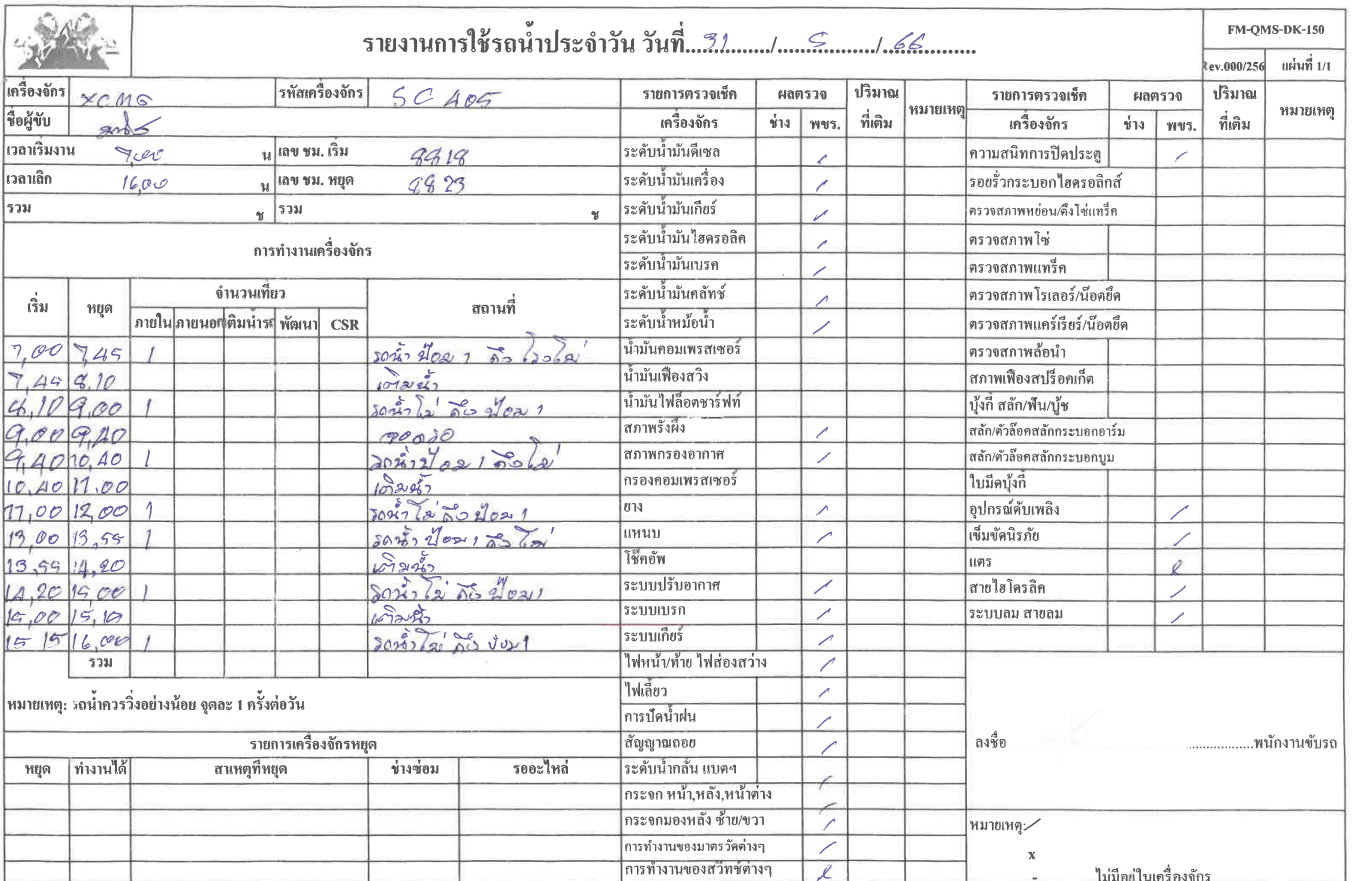 รายงานการใช้รถน้ำประจำวัน วันที่...31......../......5........./..66...............
FM-QMS-DK-150
Rev.000/256 แผ่นที่ 1/1
เครื่องจักร XCMG รหัสเครื่องจักร SC 405
ชื่อผู้ขับ
เวลาเริ่มงาน 7,00 น เลข ชม. เริ่ม 8818
เวลาเลิก 16,00 น เลข ชม. หยุด 8823
รวม ช รวม ช
การทำงานเครื่องจักร
เริ่ม หยุด จำนวนเที่ยว สถานที่
ภายใน ภายนอก เติมน้ำรถ พัฒนา CSR
7,00 7,45 1 รถน้ำ ป้อม 1 ถึง โรงโม่
7,45 8,10 เติมน้ำ
8,10 9,00 1 รถน้ำ โม่ ถึง ป้อม 1
9,00 9,40 จอดรอ
9,40 10,40 1 รถน้ำ ป้อม 1 ถึง โม่
10,40 11,00 เติมน้ำ
11,00 12,00 1 รถน้ำ โม่ ถึง ป้อม 1
13,00 13,55 1 รถน้ำ ป้อม 1 ถึง โม่
13,55 14,20 เติมน้ำ
14,20 15,00 1 รถน้ำ โม่ ถึง ป้อม 1
15,00 เติมน้ำ
15 15 16,00 1 รถน้ำ โม่ ถึง ป้อม 1
รวม
หมายเหตุ: รถน้ำควรวิ่งอย่างน้อย จุดละ 1 ครั้งต่อวัน
รายการเครื่องจักรหยุด
หยุด ทำงานได้ สาเหตุที่หยุด ช่างซ่อม รออะไหล่
รายการตรวจเช็ค ผลตรวจ ปริมาณ หมายเหตุ
เครื่องจักร ช่าง พขร. ที่เติม
ระดับน้ำมันดีเซล /
ระดับน้ำมันเครื่อง /
ระดับน้ำมันเกียร์ /
ระดับน้ำมันไฮดรอลิค /
ระดับน้ำมันเบรค /
ระดับน้ำมันคลัทช์ /
ระดับน้ำหม้อน้ำ /
น้ำมันคอมเพรสเซอร์
น้ำมันเฟืองสวิง
น้ำมันไฟล็อตชาร์ฟท์
สภาพรังผึ้ง /
สภาพกรองอากาศ /
กรองคอมเพรสเซอร์
ยาง /
แหนบ /
โช๊คอัพ
ระบบปรับอากาศ /
ระบบเบรก /
ระบบเกียร์ /
ไฟหน้า/ท้าย ไฟส่องสว่าง /
ไฟเลี้ยว /
การปัดน้ำฝน /
สัญญาณถอย /
ระดับน้ำกลั่น แบตฯ /
กระจก หน้า,หลัง,หน้าต่าง /
กระจกมองหลัง ซ้าย/ขวา /
การทำงานของมาตรวัดต่างๆ /
การทำงานของสวิทช์ต่างๆ
รายการตรวจเช็ค ผลตรวจ ปริมาณ หมายเหตุ
เครื่องจักร ช่าง พขร. ที่เติม
ความสนิทการปิดประตู /
รอยรั่วกระบอกไฮดรอลิกส์
ตรวจสภาพหย่อน/ตึงโซ่แทร็ค
ตรวจสภาพโซ่
ตรวจสภาพแทร็ค
ตรวจสภาพโรเลอร์/น๊อตยึด
ตรวจสภาพแคร์เรียร์/น๊อตยึด
ตรวจสภาพล้อนำ
สภาพเฟืองสปร็อคเก็ต
บุ้งกี๋ สลัก/ฟัน/บู้ช
สลัก/ตัวล๊อคสลักกระบอกอาร์ม
สลัก/ตัวล๊อคสลักกระบอกบูม
ใบมีดบุ้งกี๋
อุปกรณ์ดับเพลิง /
เข็มขัดนิรภัย /
แตร
สายไฮโดรลิค /
ระบบลม สายลม /
ลงชื่อ ..................พนักงานขับรถ
หมายเหตุ:/
x
- ไม่มีอยู่ในเครื่องจักร